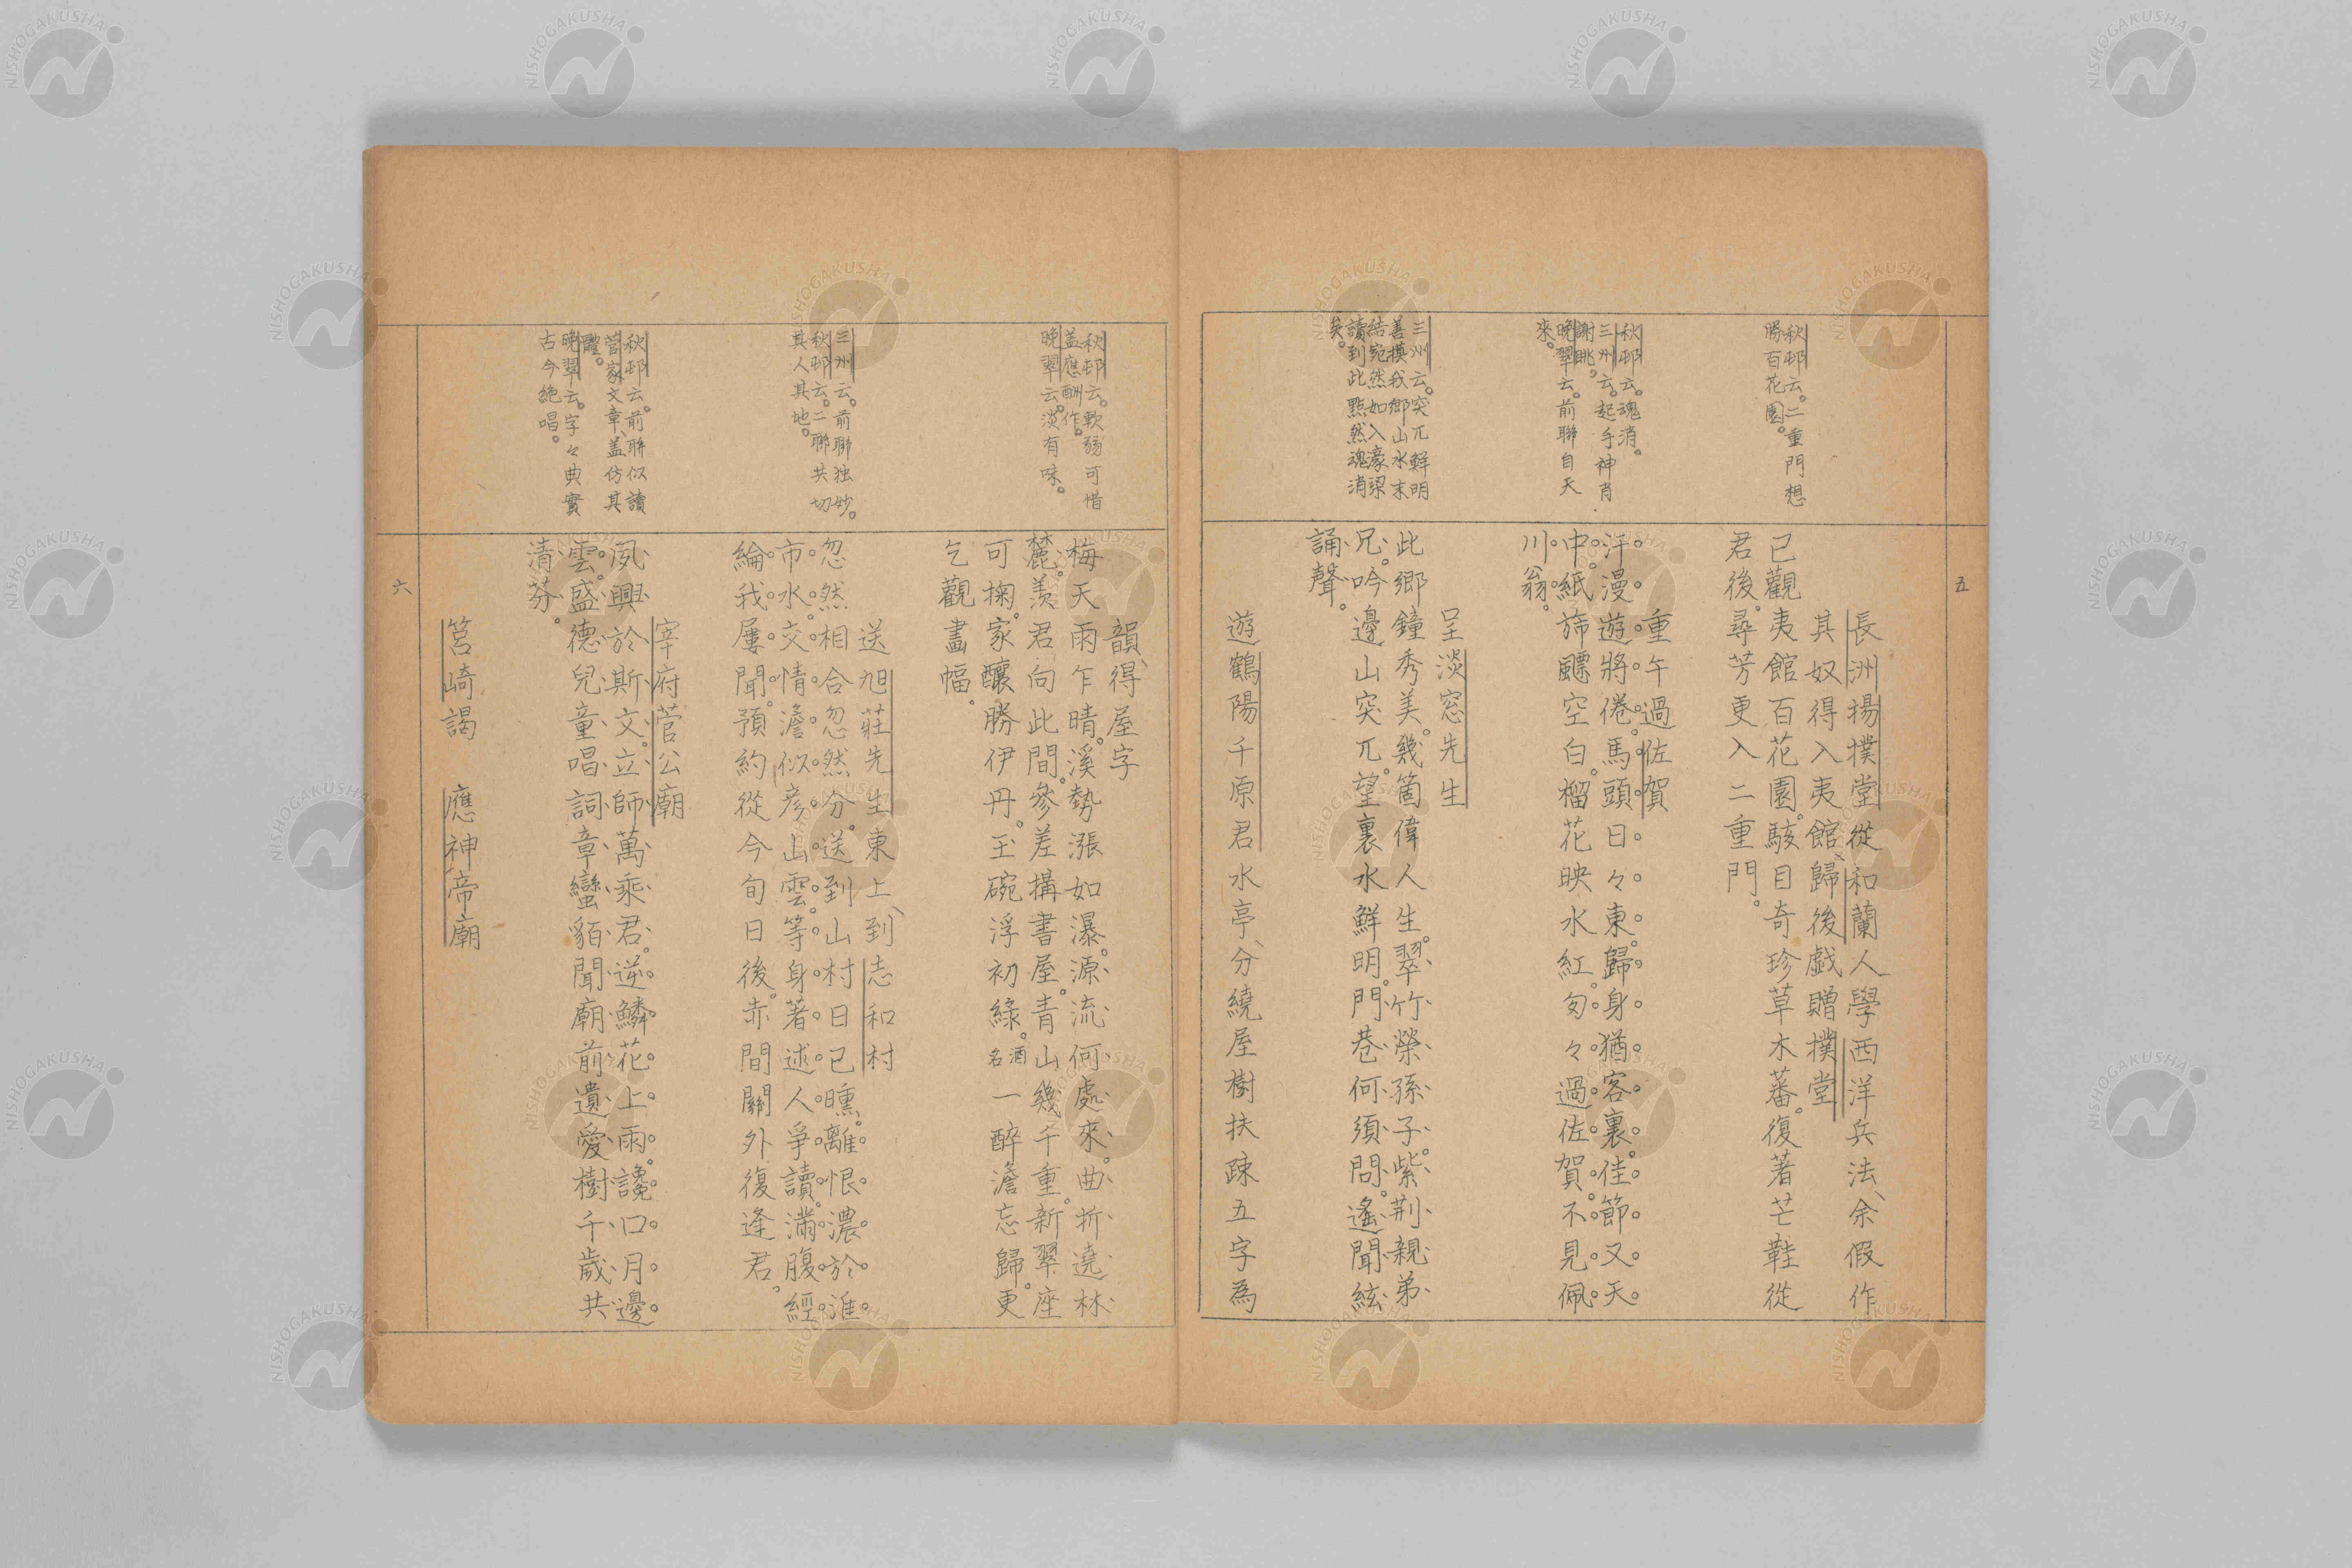 五
秋邨云。二重門想
勝百花園。
長洲揚撲堂從和蘭人學西洋兵法、余假作
其奴得入夷館歸後戯贈撲堂
已觀夷館百花園。駭目奇珍草木蕃。復著芒鞋從
君後。尋芳更入二重門。
秋邨云。魂消。
三州云。起手神肖
謝眺。
晩翠云。前聯自天
來。
重午過佐賀
汗漫遊將倦。馬頭日々東。歸身猶客裏。佳節又天
中。紙旆飃空白。榴花映水紅。匆々過佐賀。不見佩
川翁。
三州云。突兀鮮明
善摸我鄉山水末
結宛然如入濠梁
讀到此黯然魂消
矣。
呈淡窓先生
此鄉鐘秀美。幾箇偉人生。翠竹榮孫子。紫荆親弟
兄。吟邊山突兀。望裏水鮮明。門巷何須問。遙聞絃
誦聲。
遊鶴陽千原君水亭、分繞屋樹扶疎五字為
韻、得屋字
秋邨云。軟弱可惜
盖應酬作。
晩翠云。淡有味。
梅天雨乍晴。溪勢漲如瀑。源流何處來。曲折遶林
麓。羨君向此間。參差搆書屋。青山幾千重。新翠座
可掬。家釀勝伊丹。玉碗浮初綠。酒名一醉澹忘歸。更
乞觀畵幅。
三州云。前聯独妙。
秋邨云。二聯共切
其人其地。
送旭莊先生東上、到志和村
忽然相合忽然分。送到山村日已曛。離恨濃於淮
市水。交情澹似彦山雲。等身著述人爭讀。滿腹經
綸我屢聞。預約從今旬日後。赤間關外復逢君。
秋邨云。前聯似讀
菅家文章、盖仿其
體。
晩翠云。字々典實
古今絶唱。
宰府菅公廟
夙興於斯文。立師萬乘君。逆鱗花上雨。讒口月邊
雲。盛德兒童唱。詞章蠻貊聞。廟前遺愛樹。千歲共
清芬。
筥崎謁　應神帝廟
六
NISHOGAKUSHA